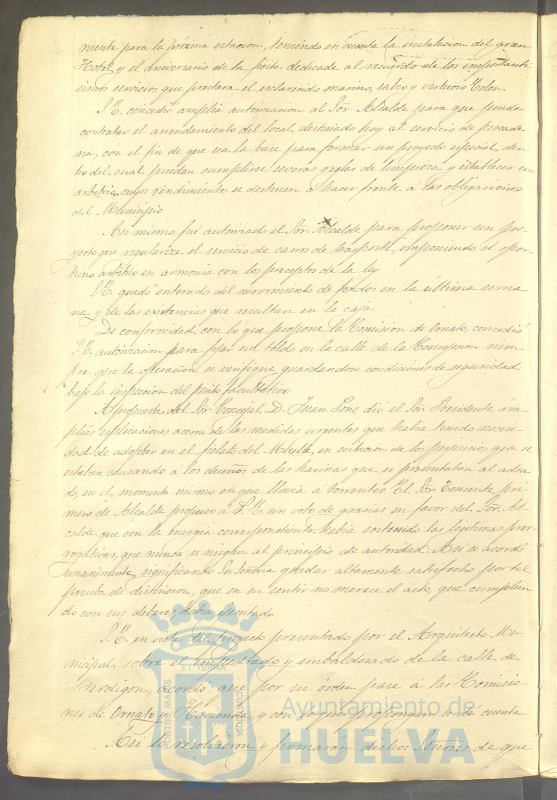 niente para la próxima estacion, teniendo en cuenta la instalacion del gran
Hotel y el aniversario de la fecha dedicada al recuerdo de los importanti
simos servicios que prestara el esclarecido marino, sabio y virtuoso Colon.
S. E. concedió amplia autorizacion al Sor. Alcalde para que pueda
contratar el arrendamiento del local, destinado hoy al servicio de pescade
ria, con el fin de que sea la base para formar un proyecto especial, den
tro del cual puedan cumplirse severas reglas de limpieza y establecer un
arbitrio cuyos rendimientos se destinen a hacer frente á las obligaciones
del Municipio
Asi mismo fué autorizado el Sor. Alcalde para proponer un pro
yecto que regularize el servicio de carros de trasporte, imponiendo el opor
tuno arbitrio en armonia con los preceptos de la ley
S. E. quedó enterado del movimiento de fondos en la última sema
na y de las existencias que resultan en la caja.
De conformidad con lo que propone la Comision de Ornato, concedió
S. E. autorizacion para fijar un toldo en la calle de la Concepcion siem
pre que la operacion se verifique guardandose condiciones de seguridad
bajo la inspeccion del perito facultativo
A propuesta del Sor. Concejal D. Juan Pons, dió el Sor. Presidente ám
plias esplicaciones acerca de las medidas urgentes que habia tenido necesi
dad de adoptar en el fielato del Muelle, en evitacion de los perjuicios que se
estaban causando a los dueños de las harinas que se presentaban al adeu
do, en el momento mismo en que llovia á torrentes. El Sor. Teniente pri
mero de Alcalde propuso á S. E. un voto de gracias en favor del Sor. Al
calde, que con la energia correspondiente habia sostenido las legitimas prer
rogativas, que nunca se niegan al principio de autoridad. Asi se acordó
unanimemente, significando Su Señoria quedar altamente satisfecho por tal
prueba de distincion, que en su sentir no merece el acto, que cumplien
do con sus deberes, habia ejecutado
S. E. en vista del proyecto presentado por el Arquitecto Mu
nicipal, sobre el empedrado y embaldosado de la calle de
Berdigon, acordó: que por su órden pase á las Comisio
nes de Ornato y Hacienda y con lo que propongan se dé cuenta
Asi lo resolvieron y firmaron dichos Señores de que
Ayuntamiento de
HUELVA